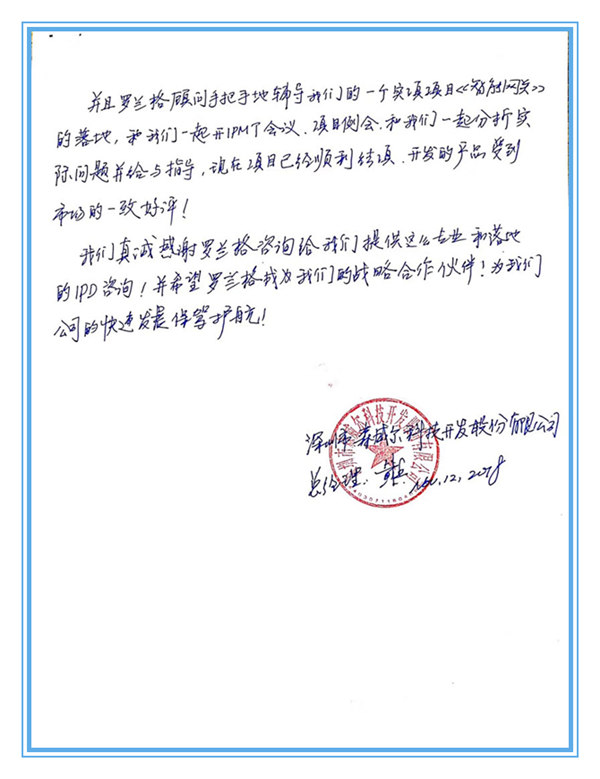 并且罗兰格顾问手把手地辅导我们的一个实项项目《智能网关》
的落地，和我们一起开IPMT会议、项目例会、和我们一起分析实
际问题并给与指导，现在项目已经顺利结项、开发的产品受到
市场的一致好评！
我们真诚感谢罗兰格咨询给我们提供这么专业和落地
的IPD咨询！并希望罗兰格成为我们的战略合作伙伴！为我们
公司的快速发展保驾护航！
深圳市 威尔科技开发股份有限公司
总经理： Nov.12, 2018